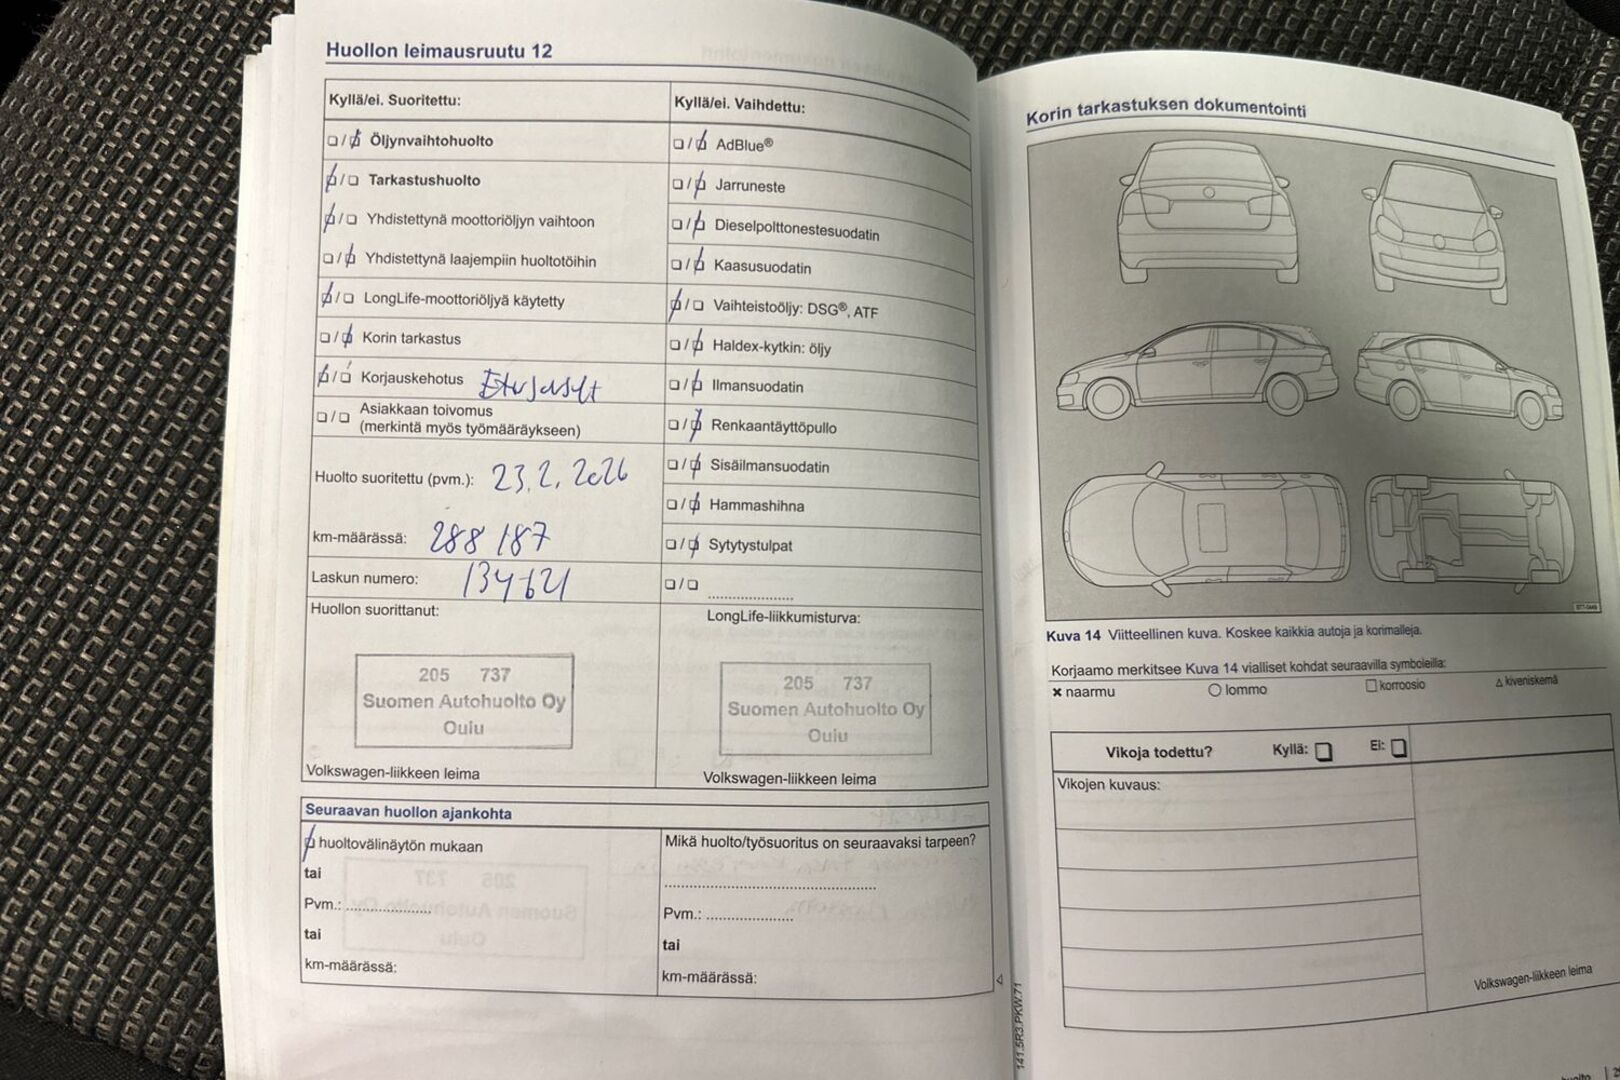 Huollon leimausruutu 12
Kyllä/ei. Suoritettu:
Kyllä/ei. Vaihdettu:
❏ / ❏ Öljynvaihtohuolto
❏ / ❏ AdBlue®
❏ / ❏ Tarkastushuolto
❏ / ❏ Jarruneste
❏ / ❏ Yhdistettynä moottoriöljyn vaihtoon
❏ / ❏ Dieselpolttonestesuodatin
❏ / ❏ Yhdistettynä laajempiin huoltotöihin
❏ / ❏ Kaasusuodatin
❏ / ❏ LongLife-moottoriöljyä käytetty
❏ / ❏ Vaihteistoöljy: DSG®, ATF
❏ / ❏ Korin tarkastus
❏ / ❏ Haldex-kytkin: öljy
❏ / ❏ Korjauskehotus
❏ / ❏ Ilmansuodatin
❏ / ❏ Asiakkaan toivomus
(merkintä myös työmääräykseen)
❏ / ❏ Renkaantäyttöpullo
Huolto suoritettu (pvm.): 23.2.2026
❏ / ❏ Sisäilmansuodatin
❏ / ❏ Hammashihna
km-määrässä: 288 187
❏ / ❏ Sytytystulpat
Laskun numero: 134621
❏ / ❏ ....................
Huollon suorittanut:
LongLife-liikkumisturva:
205 737
Suomen Autohuolto Oy
Oulu
205 737
Suomen Autohuolto Oy
Oulu
Volkswagen-liikkeen leima
Volkswagen-liikkeen leima
Seuraavan huollon ajankohta
❏ huoltovälinäytön mukaan
tai
Pvm.: ....................
tai
km-määrässä:
Mikä huolto/työsuoritus on seuraavaksi tarpeen?
..................................................
Pvm.: ....................
tai
km-määrässä:
141.5R3.PKW.71
Korin tarkastuksen dokumentointi
Kuva 14 Viitteellinen kuva. Koskee kaikkia autoja ja korimalleja.
Korjaamo merkitsee Kuva 14 vialliset kohdat seuraavilla symboleilla:
✖ naarmu ○ lommo □ korroosio △ kiveniskemä
Vikoja todettu? Kyllä: ❏ Ei: ❏
Vikojen kuvaus:
Volkswagen-liikkeen leima